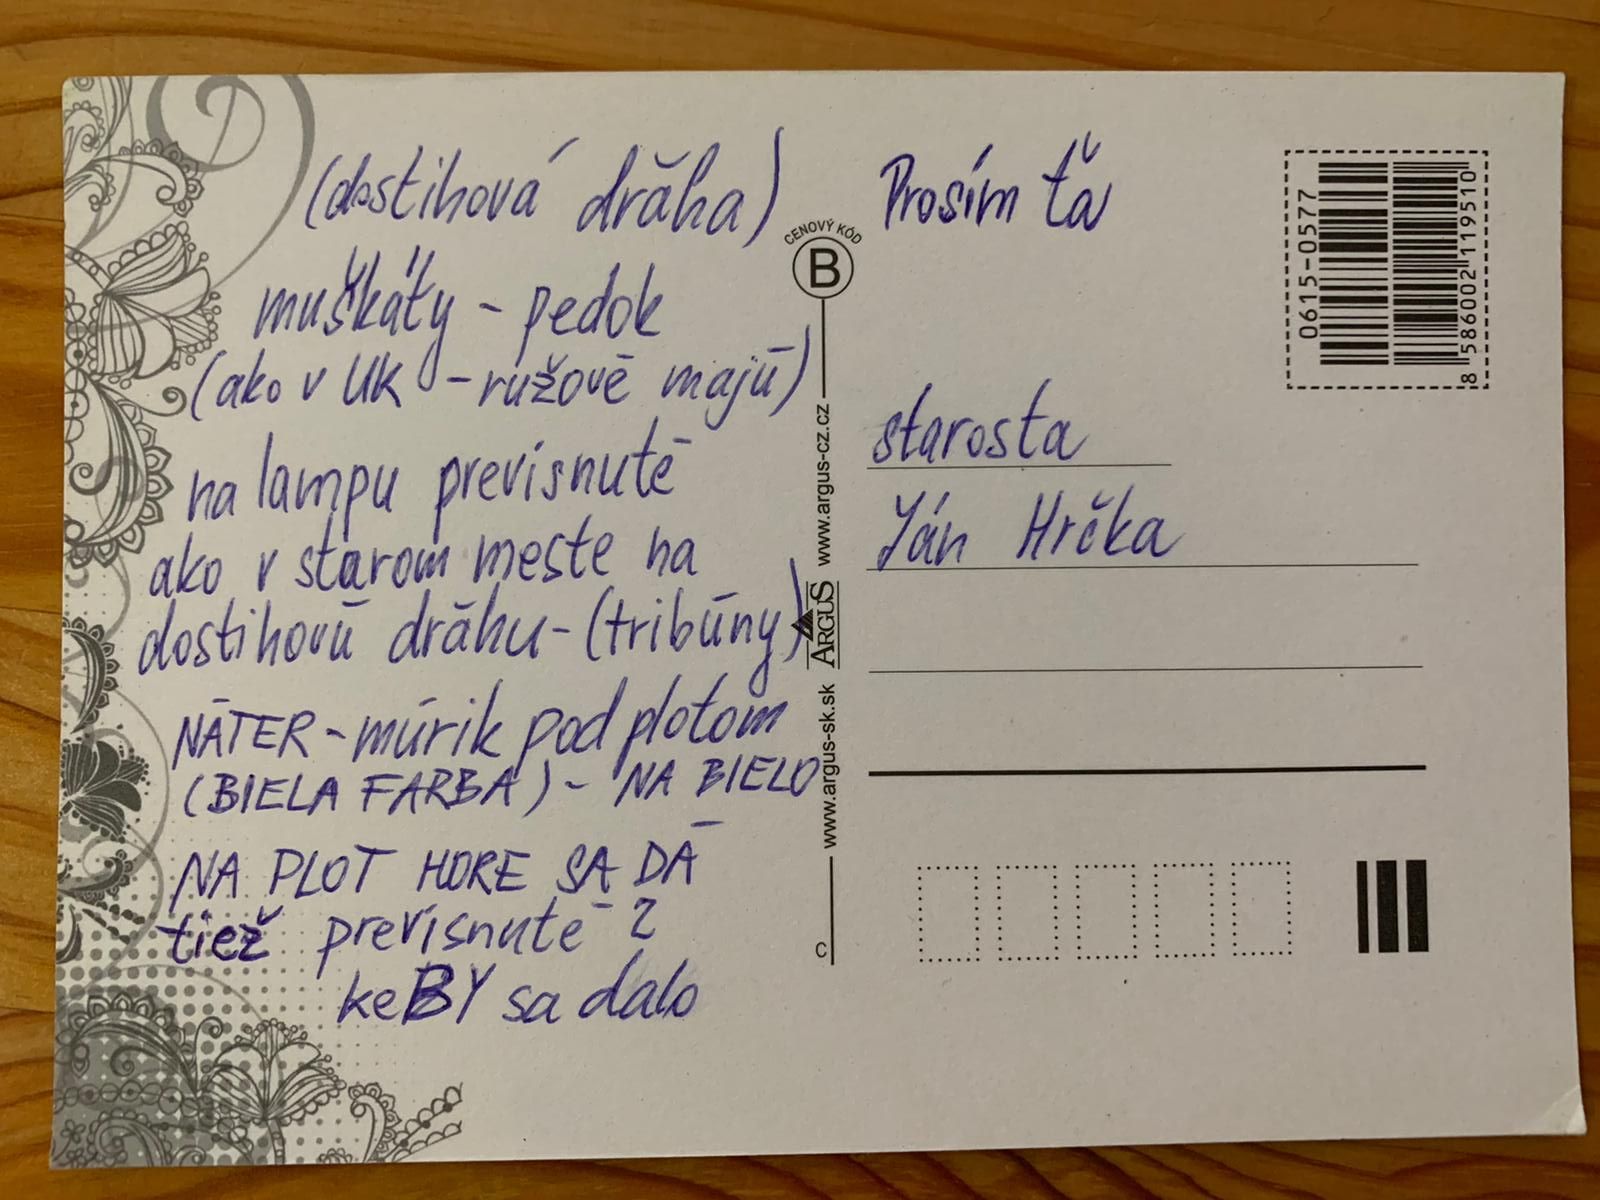 (dostihová dráha)
muškáty - pedok
(ako v UK - ružové majú)
na lampu previsnuté
ako v starom meste na
dostihovú dráhu - (tribúny)
NÁTER - múrik pod plotom
(BIELA FARBA) - NA BIELO
NA PLOT HORE SA DÁ
tiež previsnuté ?
keBY sa dalo
CENOVÝ KÓD
B
www.argus-cz.cz
ARGUS
www.argus-sk.sk
C
Prosím ťa
starosta
Ján Hrčka
0615-0577
8 586002 119510